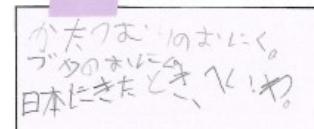 かたつむりのおにく。
ブタのおにく。
日本にきたとき、へいわ。